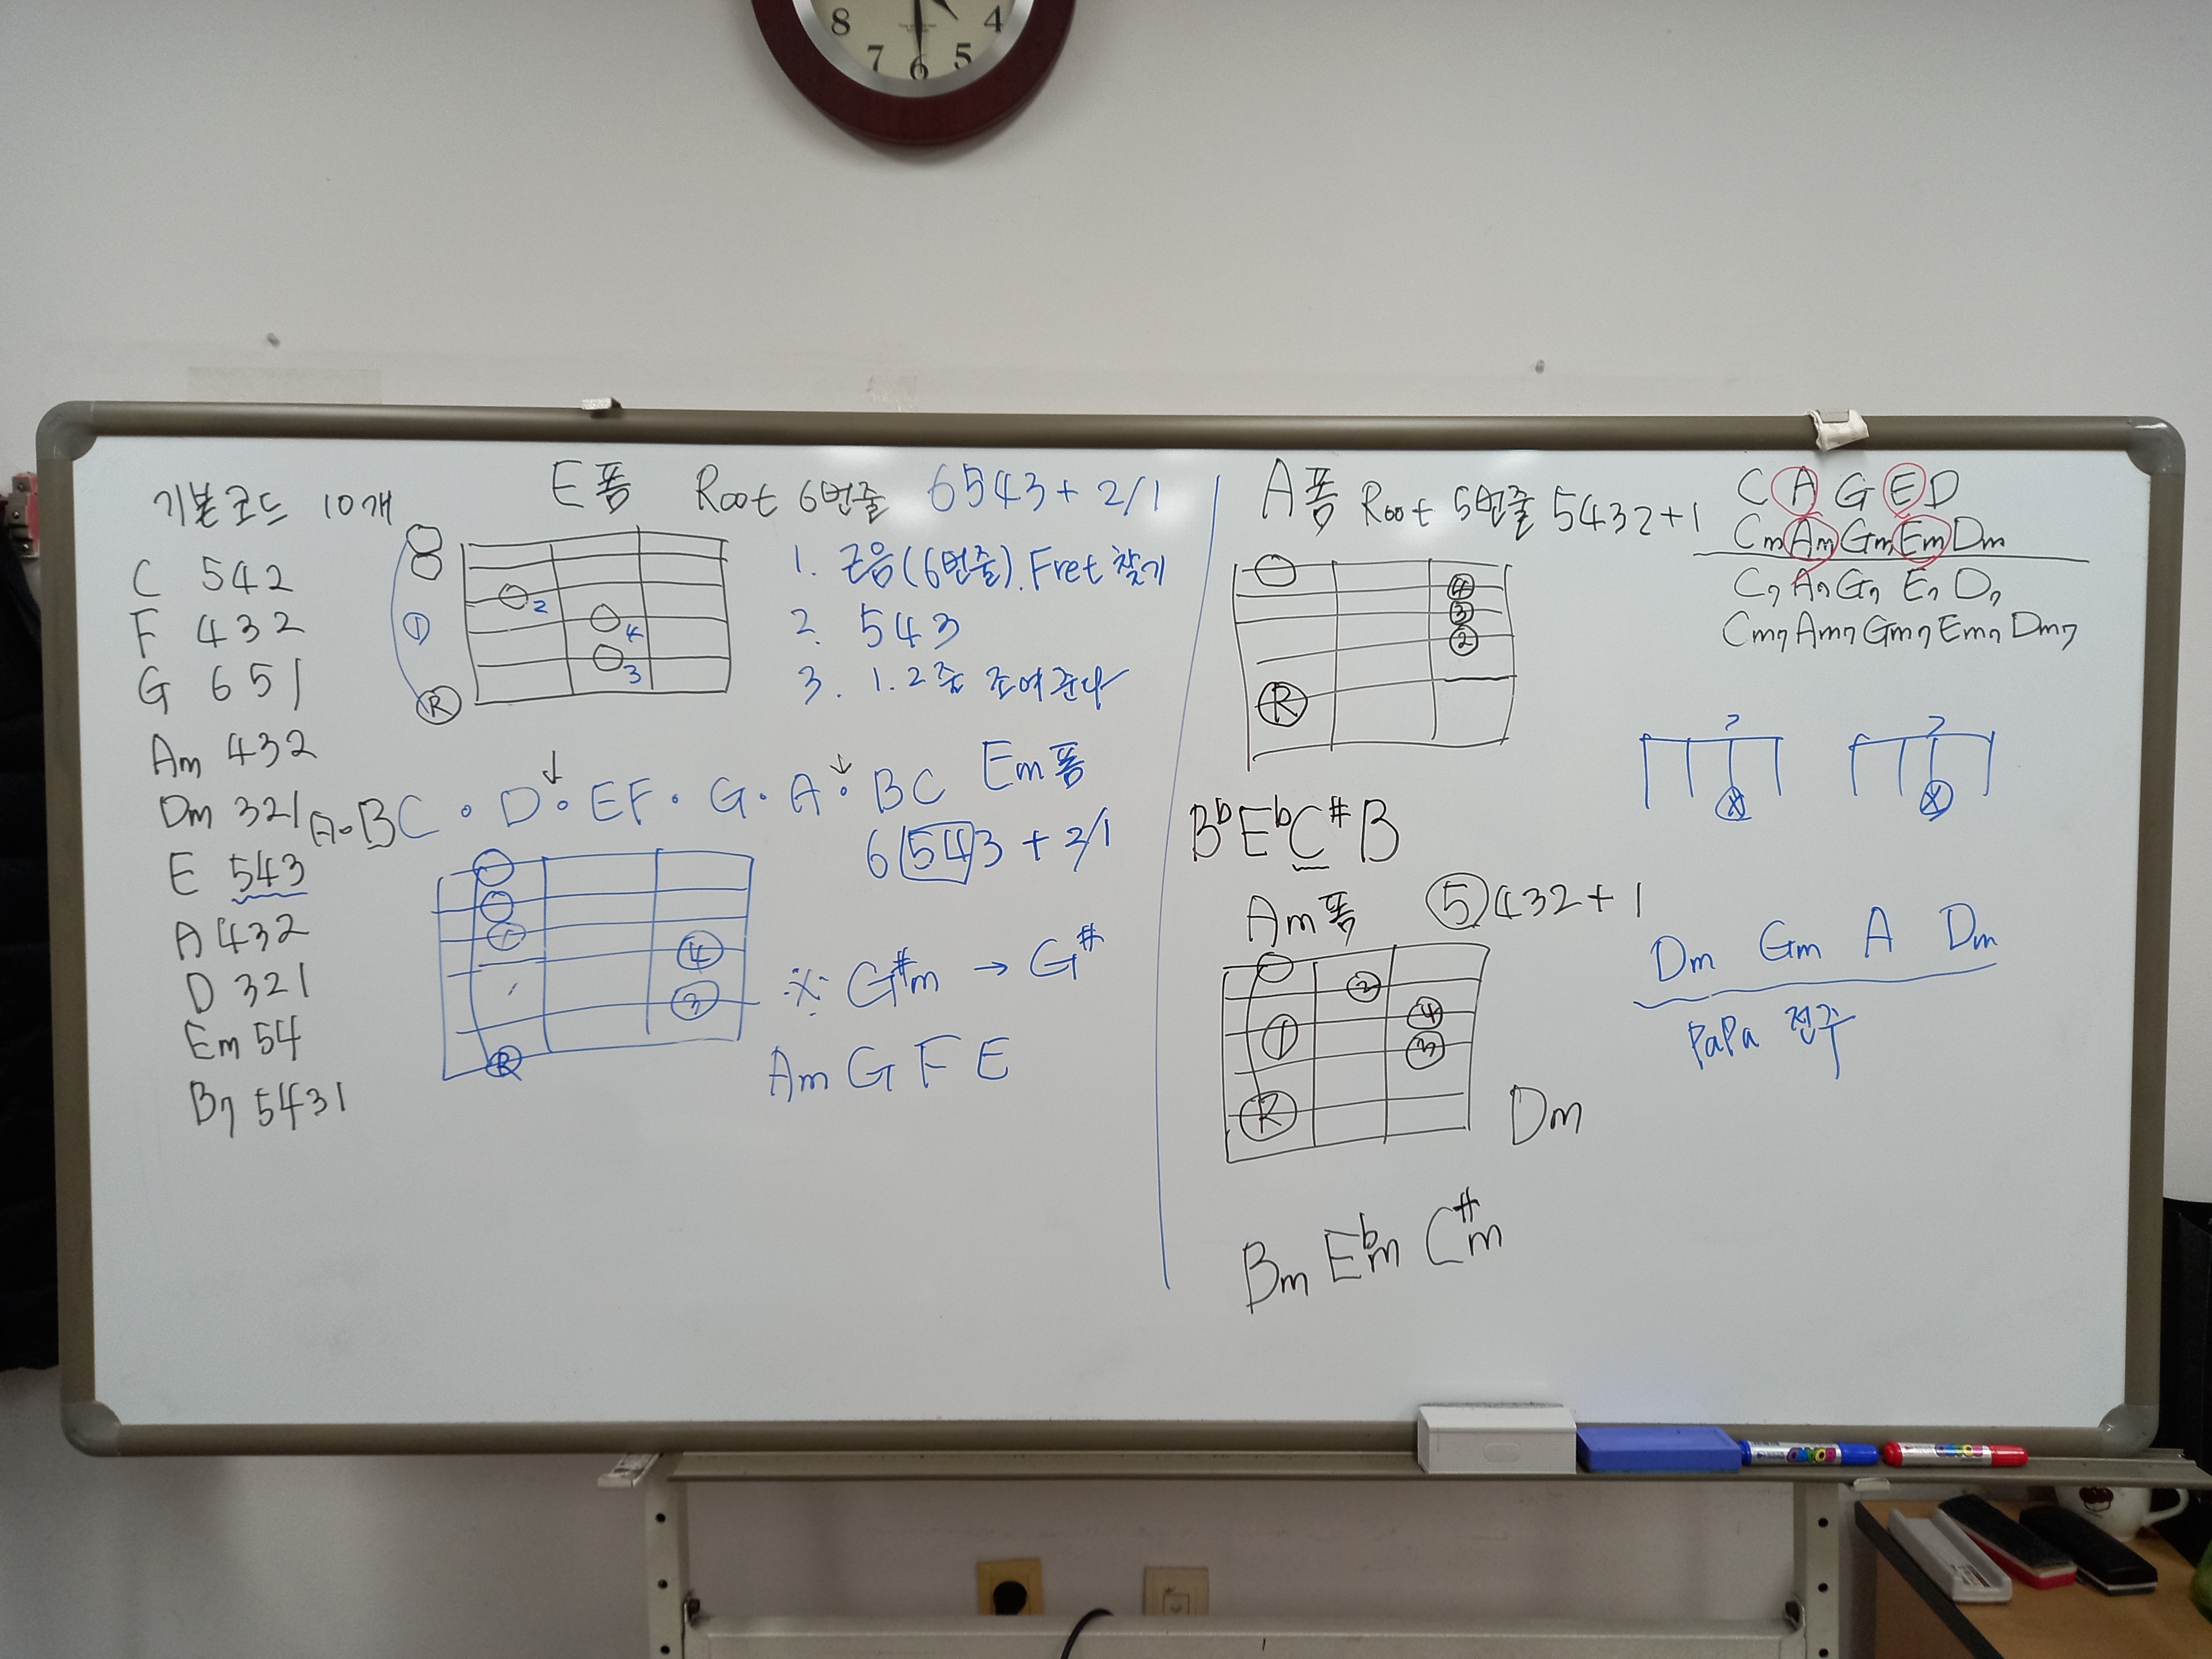 8 7 6 5 4
기본코드 10개
C 542
F 432
G 651
Am 432
Dm 321
E 543
A 432
D 321
Em 54
B7 5431
E폼 Root 6번줄 6543+2/1
① 2 4 3 R
1. 근음(6번줄). Fret 찾기
2. 543
3. 1.2줄 조여준다
A•BC • D • EF • G • A • BC
Em폼
6543+2/1
1 4 3 R
※ G#m → G#
Am G F E
A폼 Root 5번줄 5432+1
④ ③ ② R
Bb Eb C# B
Am폼 ⑤432+1
② ① ④ ③ R
Dm
Bm Ebm C#m
C A G E D
Cm Am Gm Em Dm
C7 A7 G7 E7 D7
Cm7 Am7 Gm7 Em7 Dm7
> >
Dm Gm A Dm
PaPa 전주